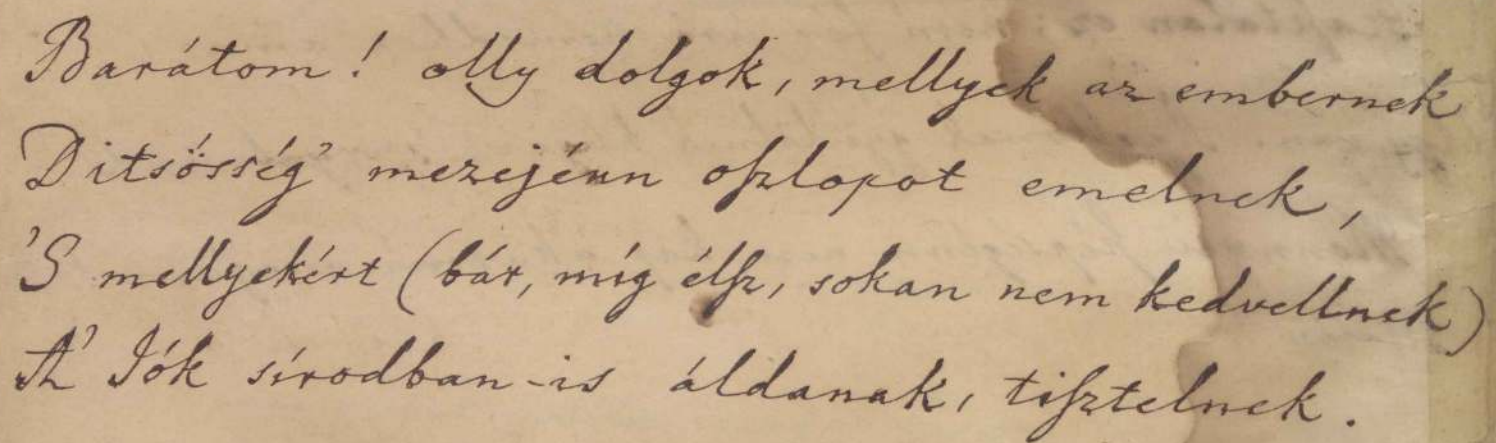 Barátom! olly dolgok, mellyek az embernek
Ditsősség' mezejénn oſzlopot emelnek,
'S mellyekért (bár, míg élſz, sokan nem kedvellnek)
A' Jók sírodban-is áldanak, tiſztelnek.